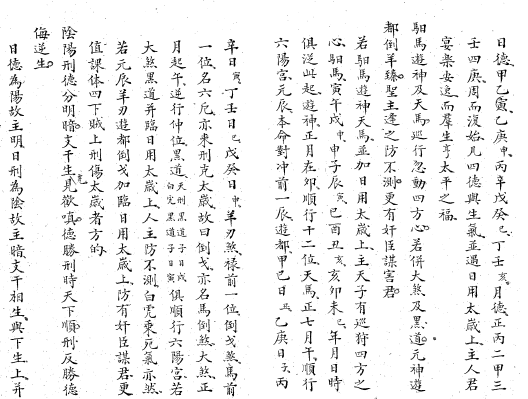 日德甲己寅乙庚申丙辛戊癸巳丁壬亥月德正丙二甲三
壬四庚周而復始凡四德與生氣並遇日用太歲上主人君
宴樂安逸而羣生亨太平之福
馹馬遊神及天馬巡行忽動四方心若併大煞及黑道元神遊
都倒羊臻聖主逢之防不測更有奸臣謀害君
若馹馬遊神天馬並加日用太歲上主天子有巡狩四方之
心馹馬寅午戌申申子辰寅巳酉丑亥亥卯未巳年月日時
俱從此起遊神正月在卯順行十二位天馬正七月午順行
六陽宮元辰本命對冲前一辰遊都甲己日丑乙庚日子丙
辛日寅丁壬日巳戊癸日申羊刃煞祿前一位倒戈煞馬前
一位名六厄亦乘刑克太歲故曰倒戈亦名馬倒煞大煞正
月起午逆行仲位黑道天刑黑道子日戌白虎黑道子日寅俱順行六陽宮若
大煞黑道并臨日用太歲上人主防不測白虎乘死氣亦然
若元辰羊刃遊都倒戈加臨日用太歲上防有奸臣謀君更
值課体四下賊上刑傷太歲者方的
陰陽刑德分明暗支干生見欲嗔德勝刑時天下順刑反勝德
侮逆生
日德為陽故主明日刑為陰故主暗支干相生與下生上并